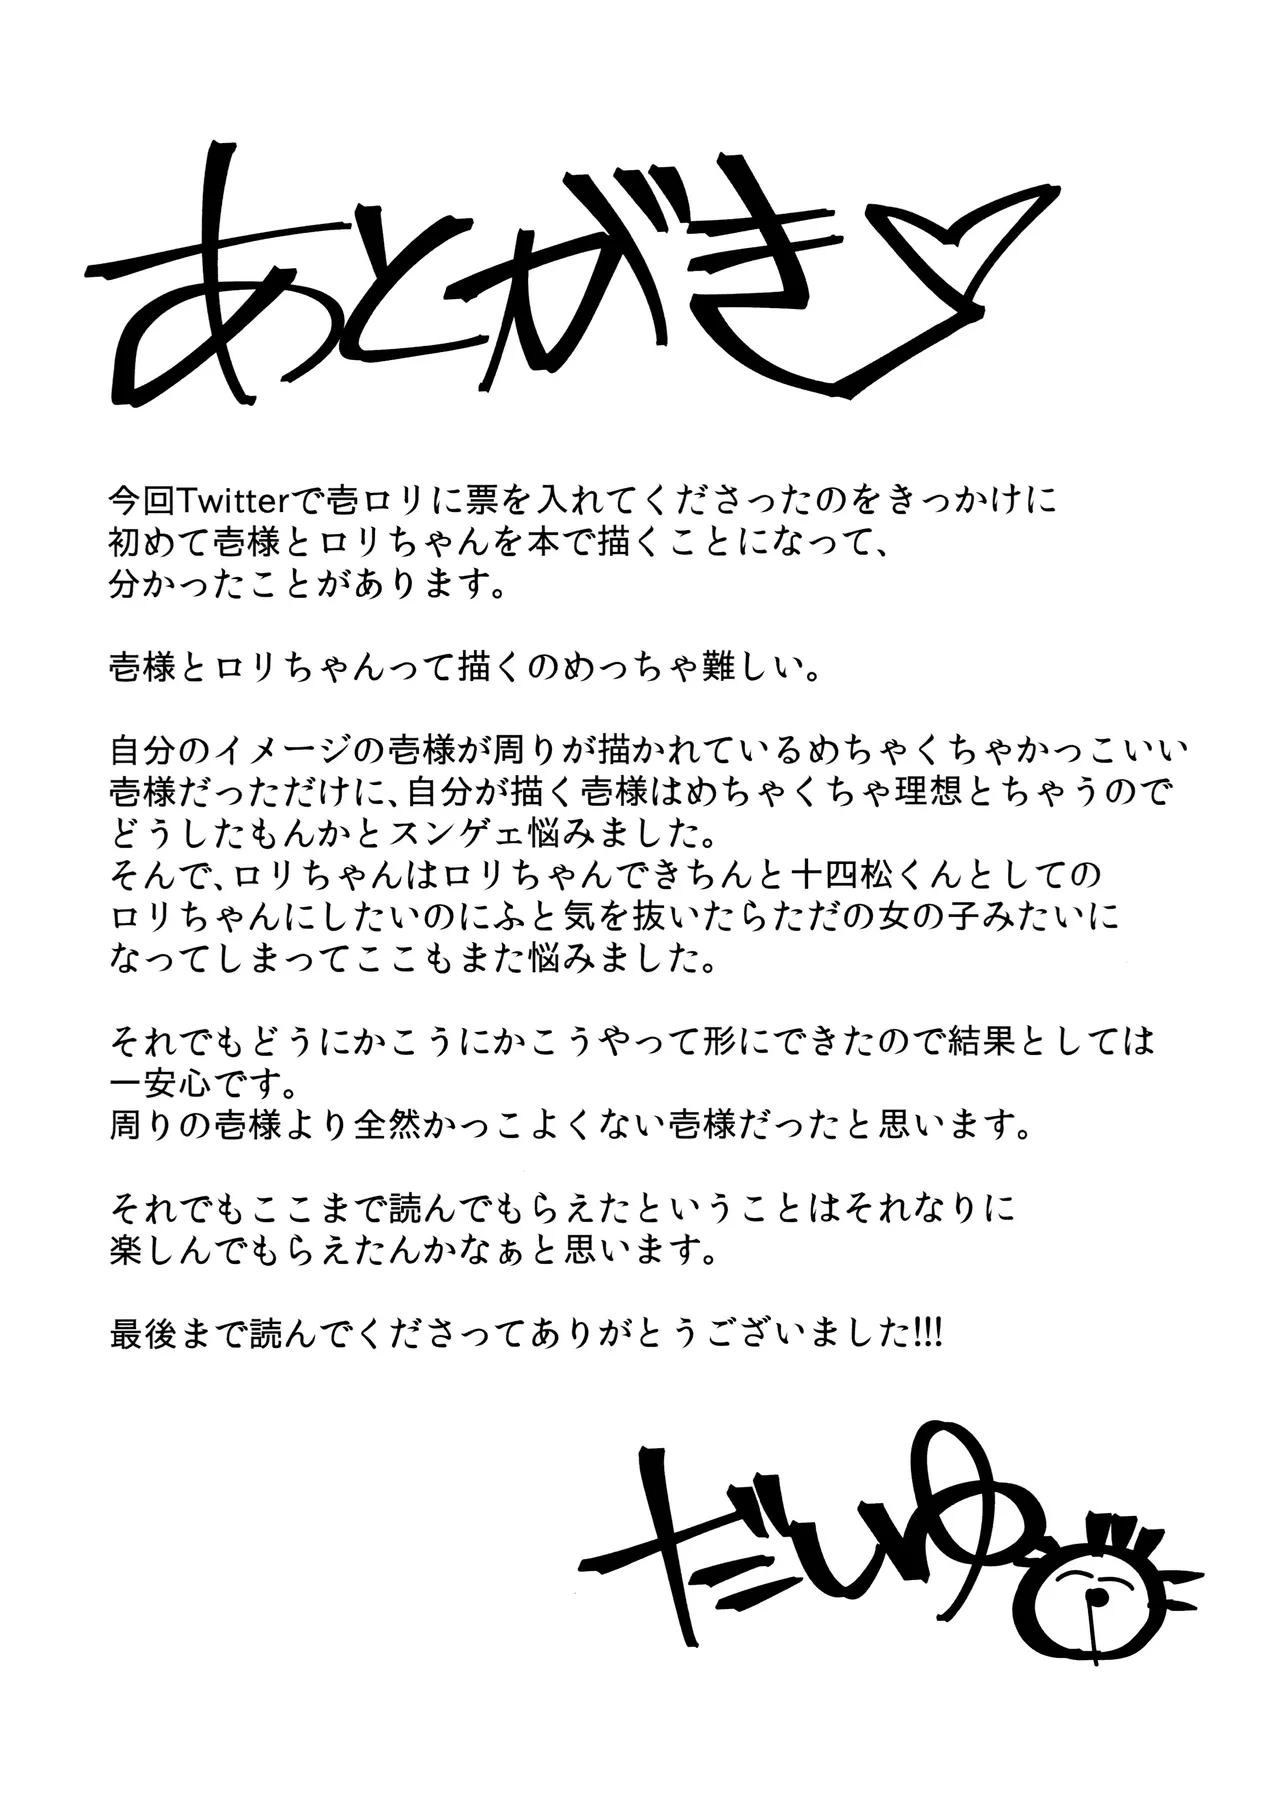 あとがき♡
今回Twitterで壱ロリに票を入れてくださったのをきっかけに
初めて壱様とロリちゃんを本で描くことになって、
分かったことがあります。
壱様とロリちゃんって描くのめっちゃ難しい。
自分のイメージの壱様が周りが描かれているめちゃくちゃかっこいい
壱様だっただけに、自分が描く壱様はめちゃくちゃ理想とちゃうので
どうしたもんかとスンゲェ悩みました。
そんで、ロリちゃんはロリちゃんできちんと十四松くんとしての
ロリちゃんにしたいのにふと気を抜いたらただの女の子みたいに
なってしまってここもまた悩みました。
それでもどうにかこうにかこうやって形にできたので結果としては
一安心です。
周りの壱様より全然かっこよくない壱様だったと思います。
それでもここまで読んでもらえたということはそれなりに
楽しんでもらえたんかなぁと思います。
最後まで読んでくださってありがとうございました!!!
だいゆ